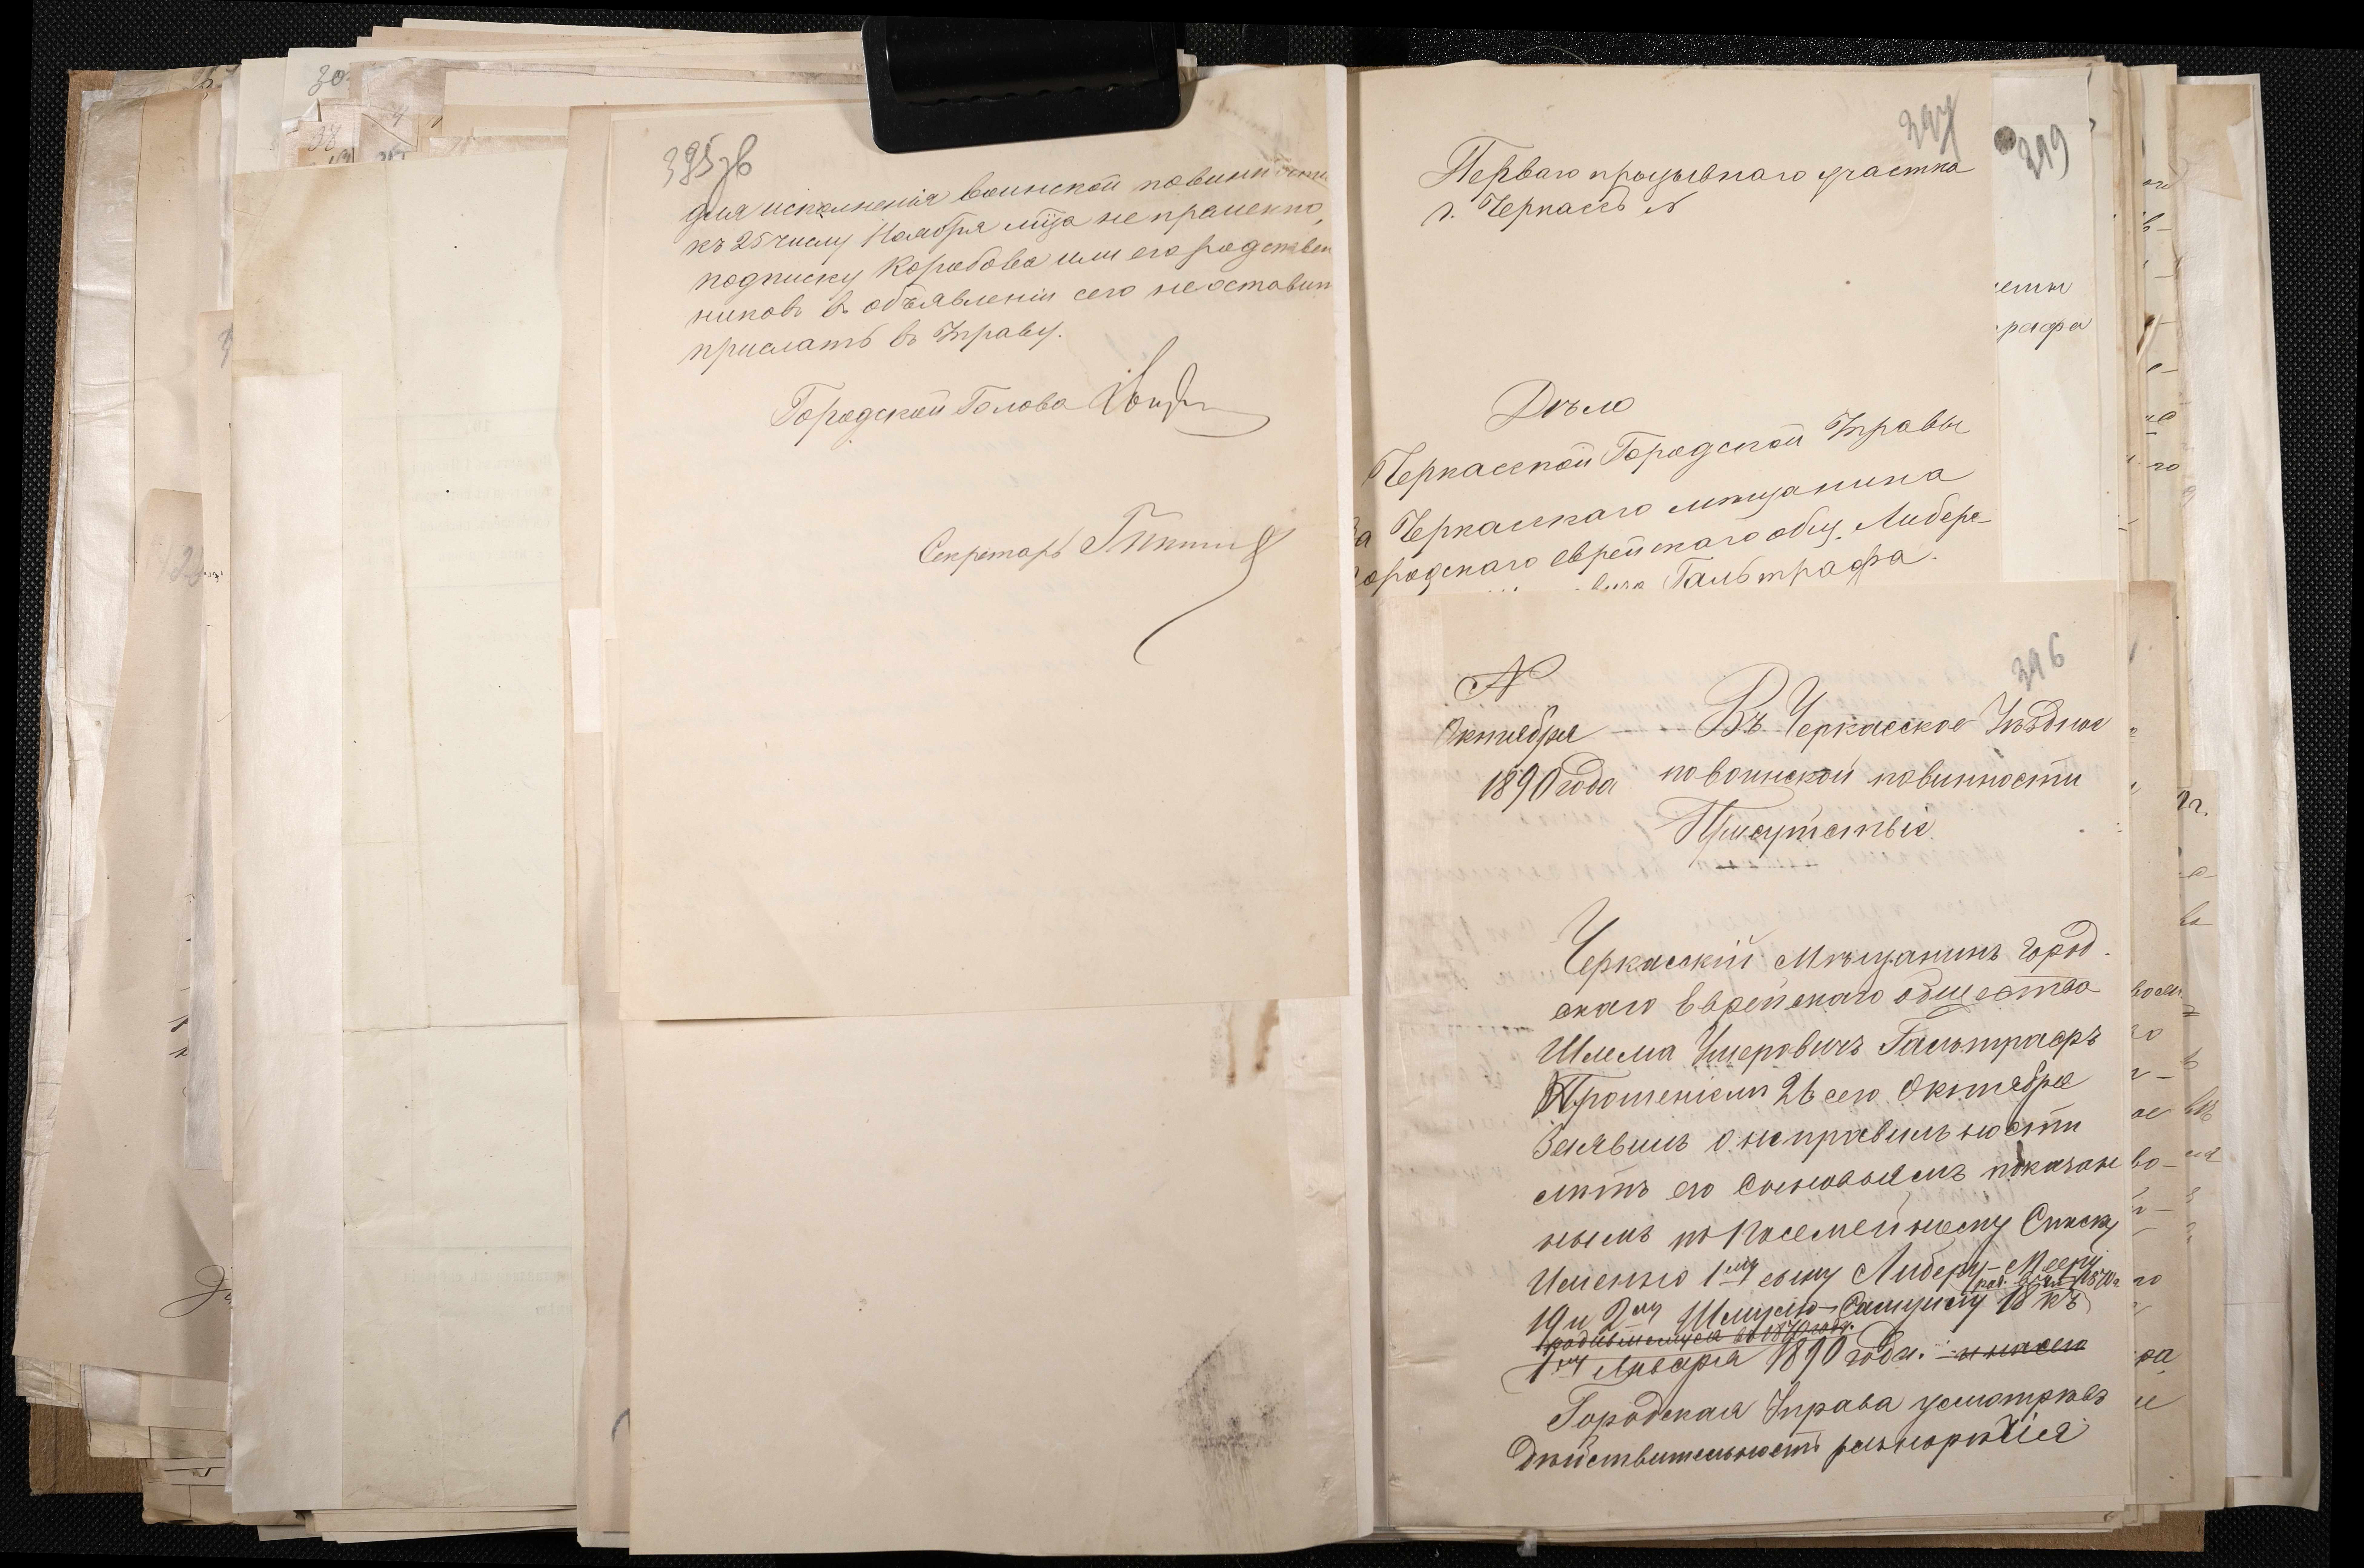 395 зв
для исполненія воинской повинности
къ 25 числу Ноября м-ца непременно,
подписку Коробова или его родствен
никовъ въ объявленіи сего неоставит
прислать въ Управу.
Городской Голова
Секретарь
397
Перваго призывнаго участка
г. Черкассъ №
319
Дѣло
Черкасской Городской Управы
Черкасскаго мѣщанина
городскаго еврейскаго общ. Либера-
Гальтрафа.
рафа
396
№
Октября
1890 года
Въ Черкасское Уѣздное
по воинской повинности
Присутствіе.
Черкасскій Мѣщанинъ Город
скаго Еврейскаго общества
Шлема Ушеровичъ Гальтрафъ
Прошеніемъ 26 сего Октября
Заявилъ о неправильности
лѣтъ его Сыновьямъ показан
нымъ по Посемейному Списку
Именно 1му сыну Либеру-Мееру
род. въ 1870 г
19 и 2му Шмулю-Самуилу 18 къ
родившемуся въ 1870 году.
1му Января 1890 года. и на сего
Городская Управа усмотрѣвъ
Дѣйствительность разнорѣчія